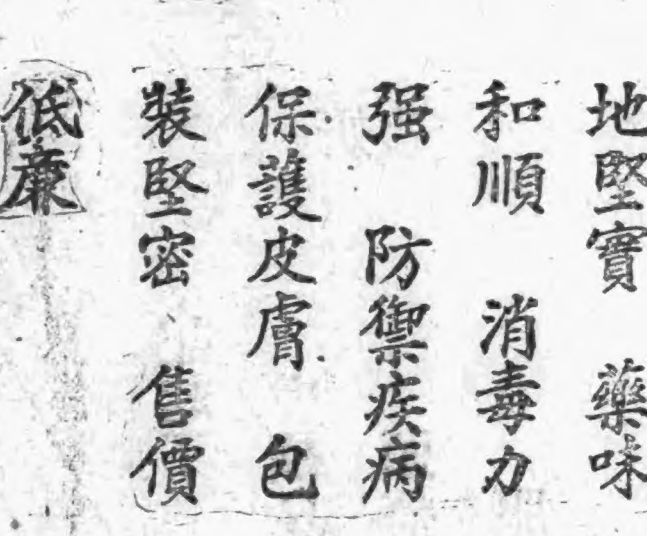 地堅實　藥味
和順　消毒力
强　防禦疾病
保護皮膚　包
裝堅密　售價
低廉